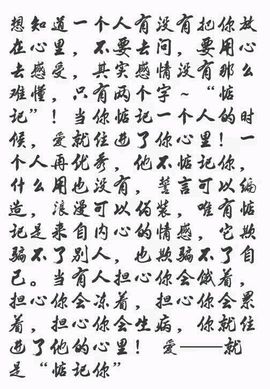 想知道一个人有没有把你放
在心里，不要去问，要用心
去感受，其实感情没有那么
难懂，只有两个字～“惦
记”！当你惦记一个人的时
候，爱就住进了你心里！一
个人再优秀，他不惦记你，
什么用也没有，誓言可以编
造，浪漫可以伪装，唯有惦
记是来自内心的情感，它欺
骗不了别人，也欺骗不了自
己。当有人担心你会饿着，
担心你会冻着，担心你会累
着，担心你会生病，你就住
进了他的心里！爱——就
是“惦记你”